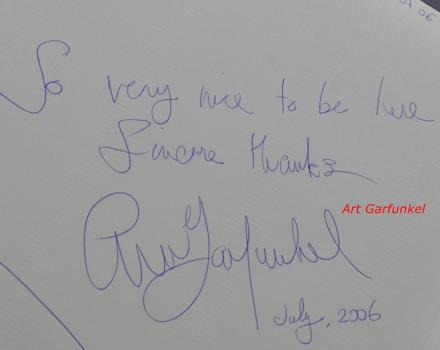 04.06
So very nice to be here
Sincere thanks
Art Garfunkel
Art Garfunkel
July, 2006